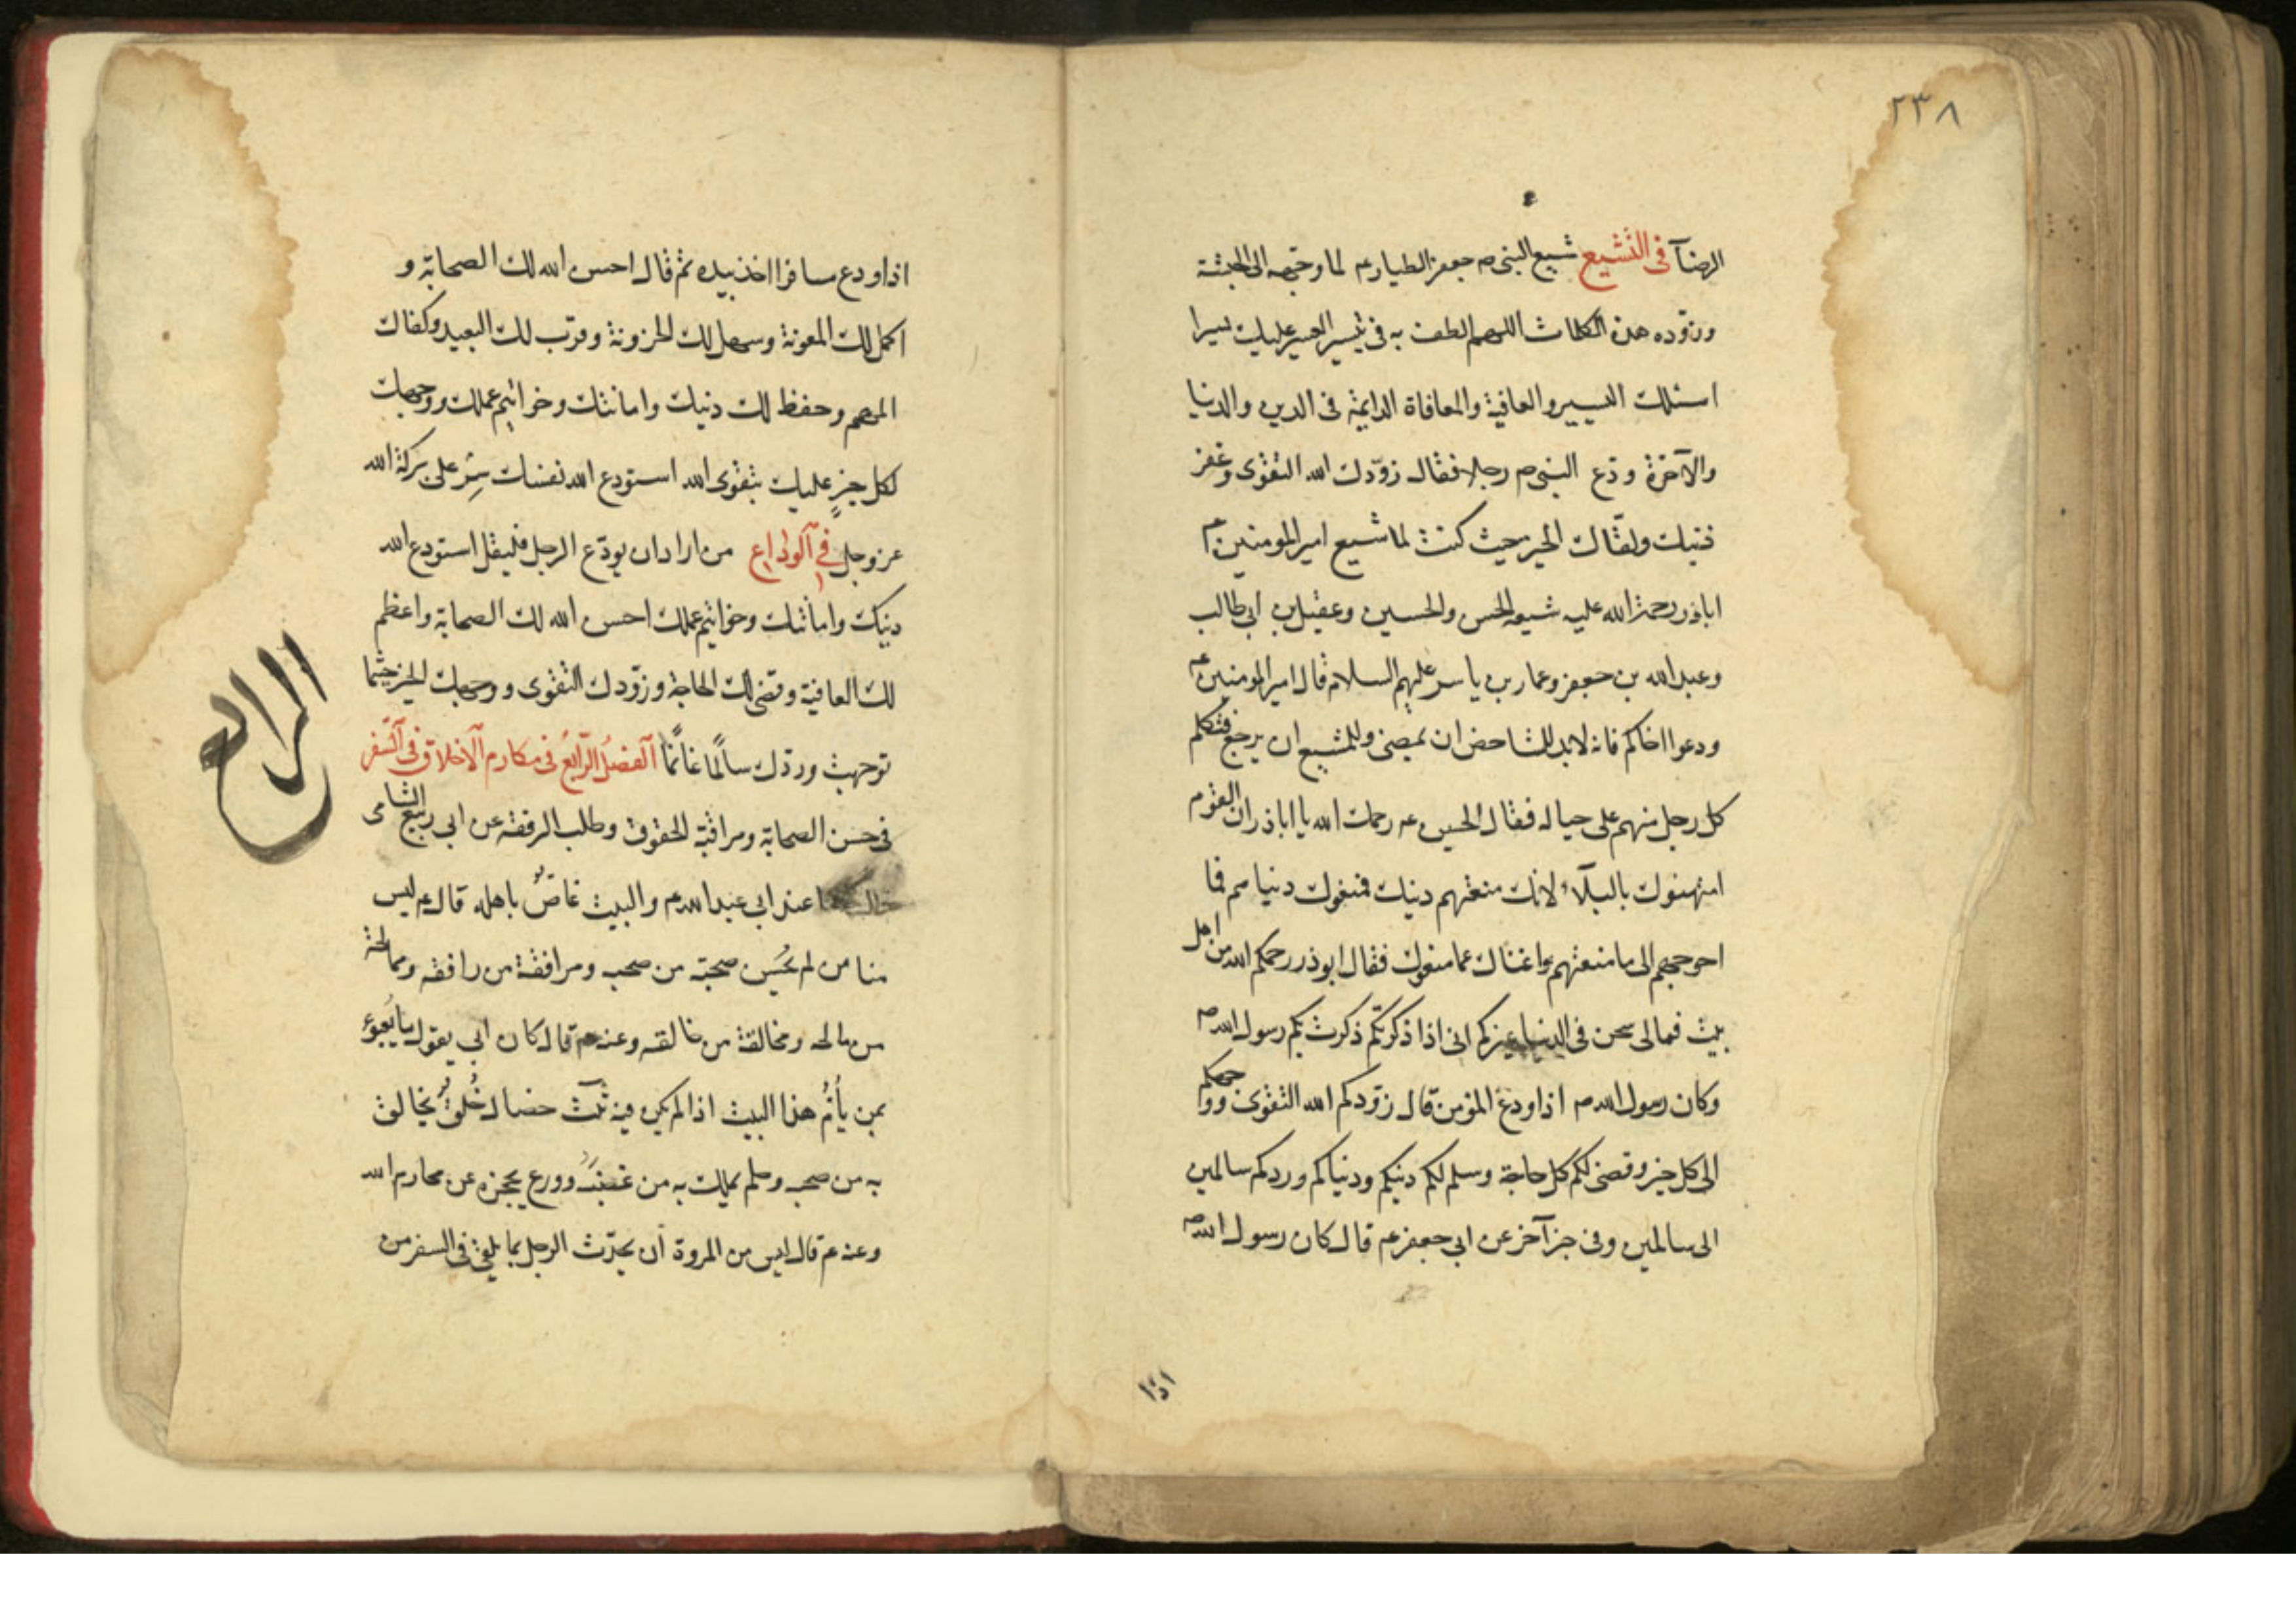 ٢٣٨
الرضآ في التشيع شيع النبي ص جعفر الطيار ع لما وجهه الى الحبشة
وزوده هذه الكلمات اللهم الطف به في تيسير العسير عليك يسير
اسئلك اليسير والعافية والمعافاة الدايمة فى الدين والدنيا
والآخرة ودّع النبي ص رجلا فقال زوّدك الله التقوى وغفر
ذنبك ولقّاك الخير حيث كنت لما شيع امير المومنين ع
اباذر رحمة الله عليه شيعه الحسن والحسين وعقيل بن ابى طالب
وعبد الله بن جعفر وعمار بن ياسر عليهم السلام قال امير المومنين ع
ودعوا اخاكم فانه لابد للشاخص ان يمضى وللمشيع ان يرجع فتكلم
كل رجل منهم على حياله فقال الحسين ع رحمك الله يا اباذر ان القوم
امتهنوك بالبلآء لانك منعتهم دينك فمنعوك دنياهم فما
احوجهم الى ما منعتهم واغناك عما منعوك فقال ابوذر رحمكم الله من اهل
بيت فمالى شجن فى الدنيا غيركم انى اذا ذكرتكم ذكرت بكم رسول الله ص
وكان رسول الله ص اذا ودع المؤمن قال زوّدكم الله التقوى ووجهكم
الى كل خير وقضى لكم كل حاجة وسلم لكم دينكم ودنياكم وردكم سالمين
الى سالمين وفى خبر آخر عن ابى جعفر ع قال كان رسول الله ص
اذا
اذا ودع مسافرا اخذ بيده ثم قال احسن الله لك الصحابة و
اكمل لك المعونة وسهل لك الحزونة وقرّب لك البعيد وكفاك
المهم وحفظ لك دينك وامانتك وخواتيم عملك ووجهك
لكل خيرٍ عليك بتقوى الله استودع الله نفسك سِر على بركة الله
عز وجل في الوداع من اراد ان يودّع الرجل فليقل استودع الله
دينك وامانتك وخواتيم عملك احسن الله لك الصحابة واعظم
لك العافية وقضى لك الحاجة وزوّدك التقوى ووجهك للخير حيثما
توجهت وردّك سالمًا غانمًا الفصل الرّابع في مكارم الاخلاق في السّفر
الرابع
في حسن الصحابة ومراقبة الحقوق وطلب الرفقة عن ابى ربيع الشامى
قال كنا عند ابى عبد الله ع والبيت غاصٌ باهله قال ع ليس
منا من لم يُحسن صحبة من صحبه ومرافقة من رافقه وممالحة
من مالحه ومخالقة من خالقه وعنه ع قال كان ابى يقول ما يُعبؤ
بمن يأُمُّ هذا البيت اذا لم يكن فيه ثلث خصال خُلقٌ يخالق
به من صحبه وحلم يملك به من غضبه وورع يحجزه عن محارم الله
وعنه ع قال ليس من المروة أن يحدّث الرجل بما يلقى فى السفر من